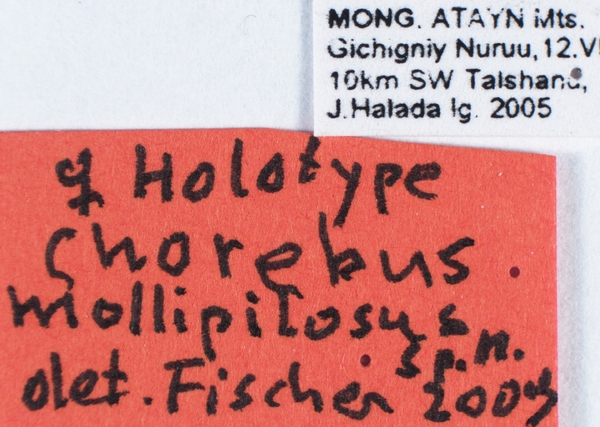 MONG. ATAYN Mts.
Gichigniy Nuruu, 12.VI
10km SW Taishand,
J.Halada lg. 2005
♀ Holotype
Chorebus
mollipilosus
sp.n.
det. Fischer